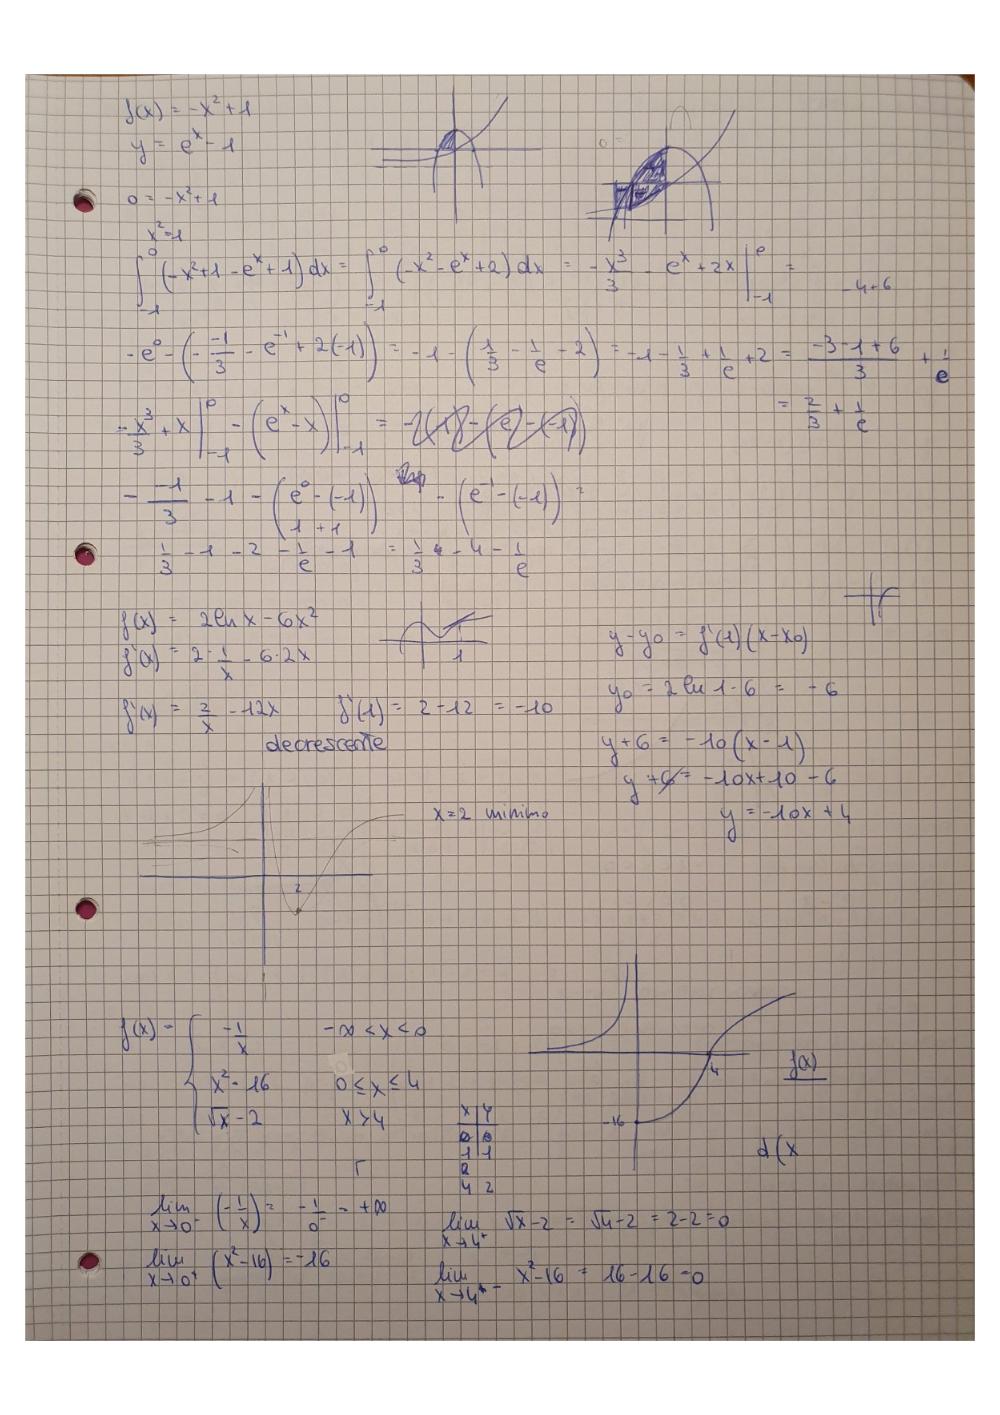 f(x) = -x² + 1
y = eˣ - 1
0 =
0 = -x² + 1
x² = 1
∫₋₁⁰ (-x² + 1 - eˣ + 1) dx = ∫₋₁⁰ (-x² - eˣ + 2) dx = - x³/3 eˣ + 2x |₋₁⁰ =
-4+6
- e⁰ - (- -1/3 - e⁻¹ + 2(-1)) = -1 - (1/3 - 1/e - 2) = -1 - 1/3 + 1/e + 2 = (-3-1+6)/3 + 1/e
= 2/3 + 1/e
- x³/3 + x |₋₁⁰ - (eˣ - x) |₋₁⁰ =
- -1/3 - 1 - (e⁰ - (-1)) - (e⁻¹ - (-1)) =
1 + 1
1/3 - 1 - 2 - 1/e - 1 = 1/3 - 4 - 1/e
f(x) = 2 ln x - 6x²
f'(x) = 2 · 1/x - 6·2x
1
f'(x) = 2/x - 12x f'(1) = 2 - 12 = -10
decrescente
y - y₀ = f'(1) (x - x₀)
y₀ = 2 ln 1 - 6 = -6
y + 6 = -10 (x - 1)
y + 6 = -10x + 10 - 6
y = -10x + 4
x = 2 minimo
2
f(x) = { -1/x -∞ < x < 0
x² - 16 0 ≤ x ≤ 4
√x - 2 x > 4
4
f(x)
-16
d(x
x y
0 0
1 1
2
4 2
lim x→0⁻ (-1/x) = - 1/0⁻ = +∞
lim x→0⁺ (x² - 16) = -16
lim x→4⁺ √x - 2 = √4 - 2 = 2 - 2 = 0
lim x→4⁻ x² - 16 = 16 - 16 = 0